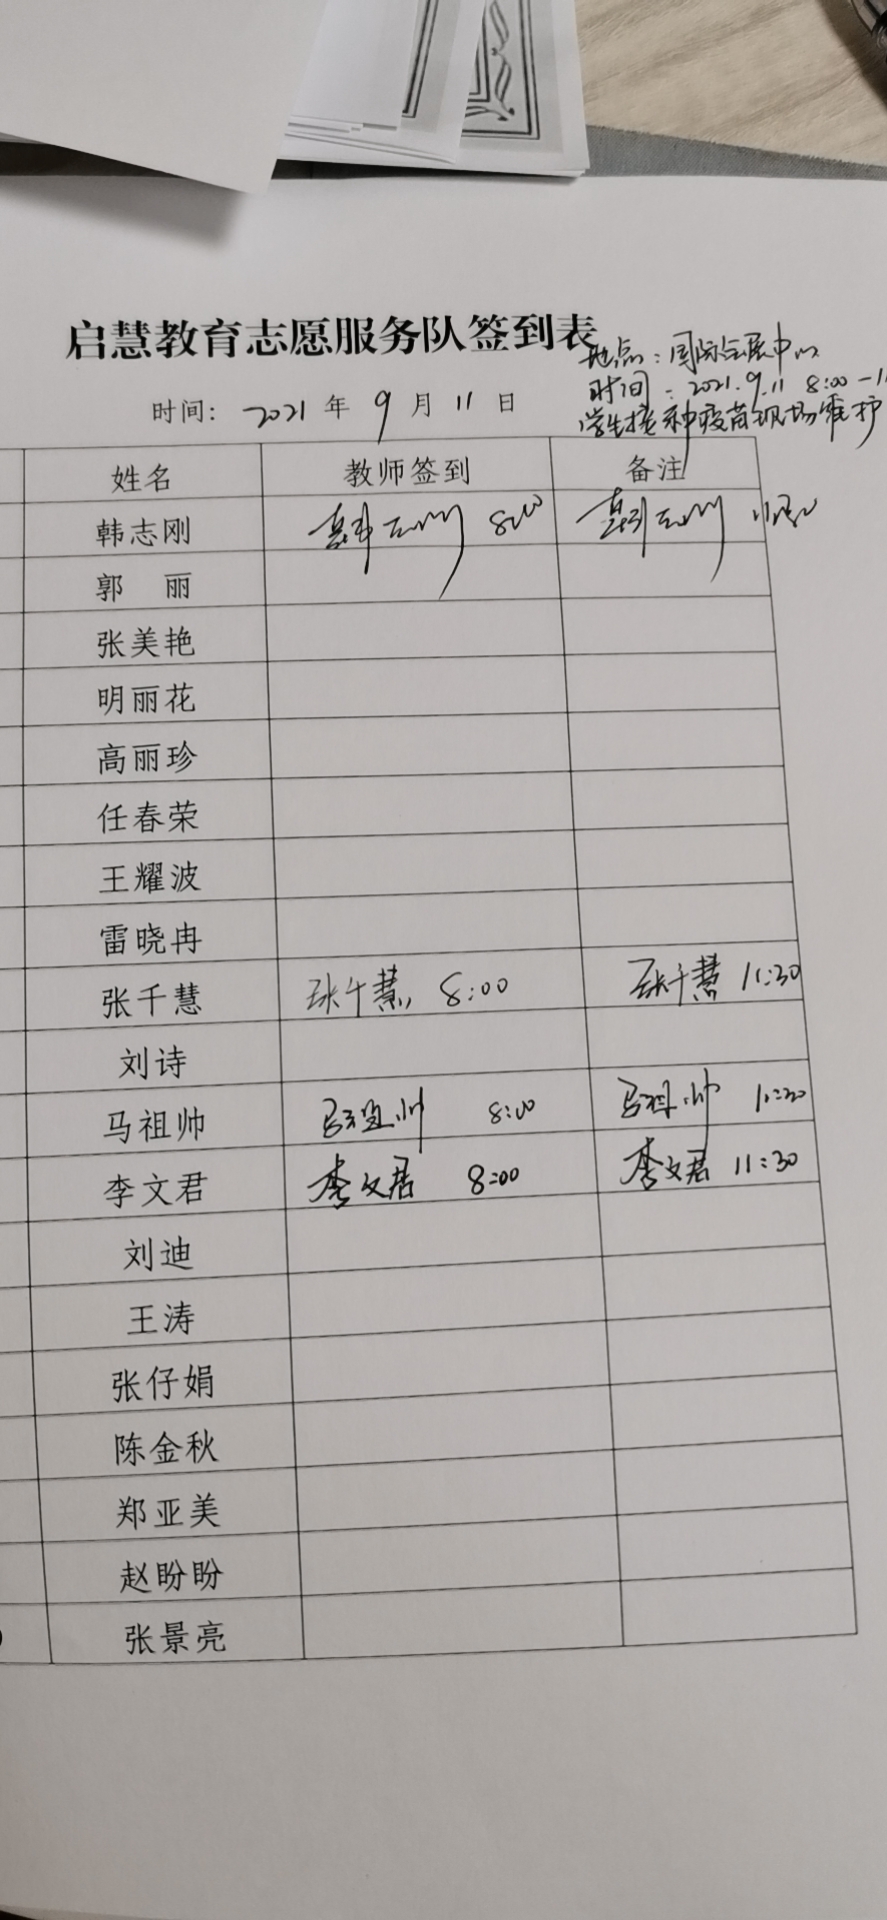 启慧教育志愿服务队签到表
地点：国际会展中心
时间：2021.9.11 8:00-11
学生接种疫苗现场维护
时间：2021 年 9 月 11 日
姓名 教师签到 备注
韩志刚 韩志刚 8:00 韩志刚 11:30
郭 丽
张美艳
明丽花
高丽珍
任春荣
王耀波
雷晓冉
张千慧 张千慧 8:00 张千慧 11:30
刘诗
马祖帅 马祖帅 8:00 马祖帅 11:30
李文君 李文君 8:00 李文君 11:30
刘迪
王涛
张仔娟
陈金秋
郑亚美
赵盼盼
张景亮